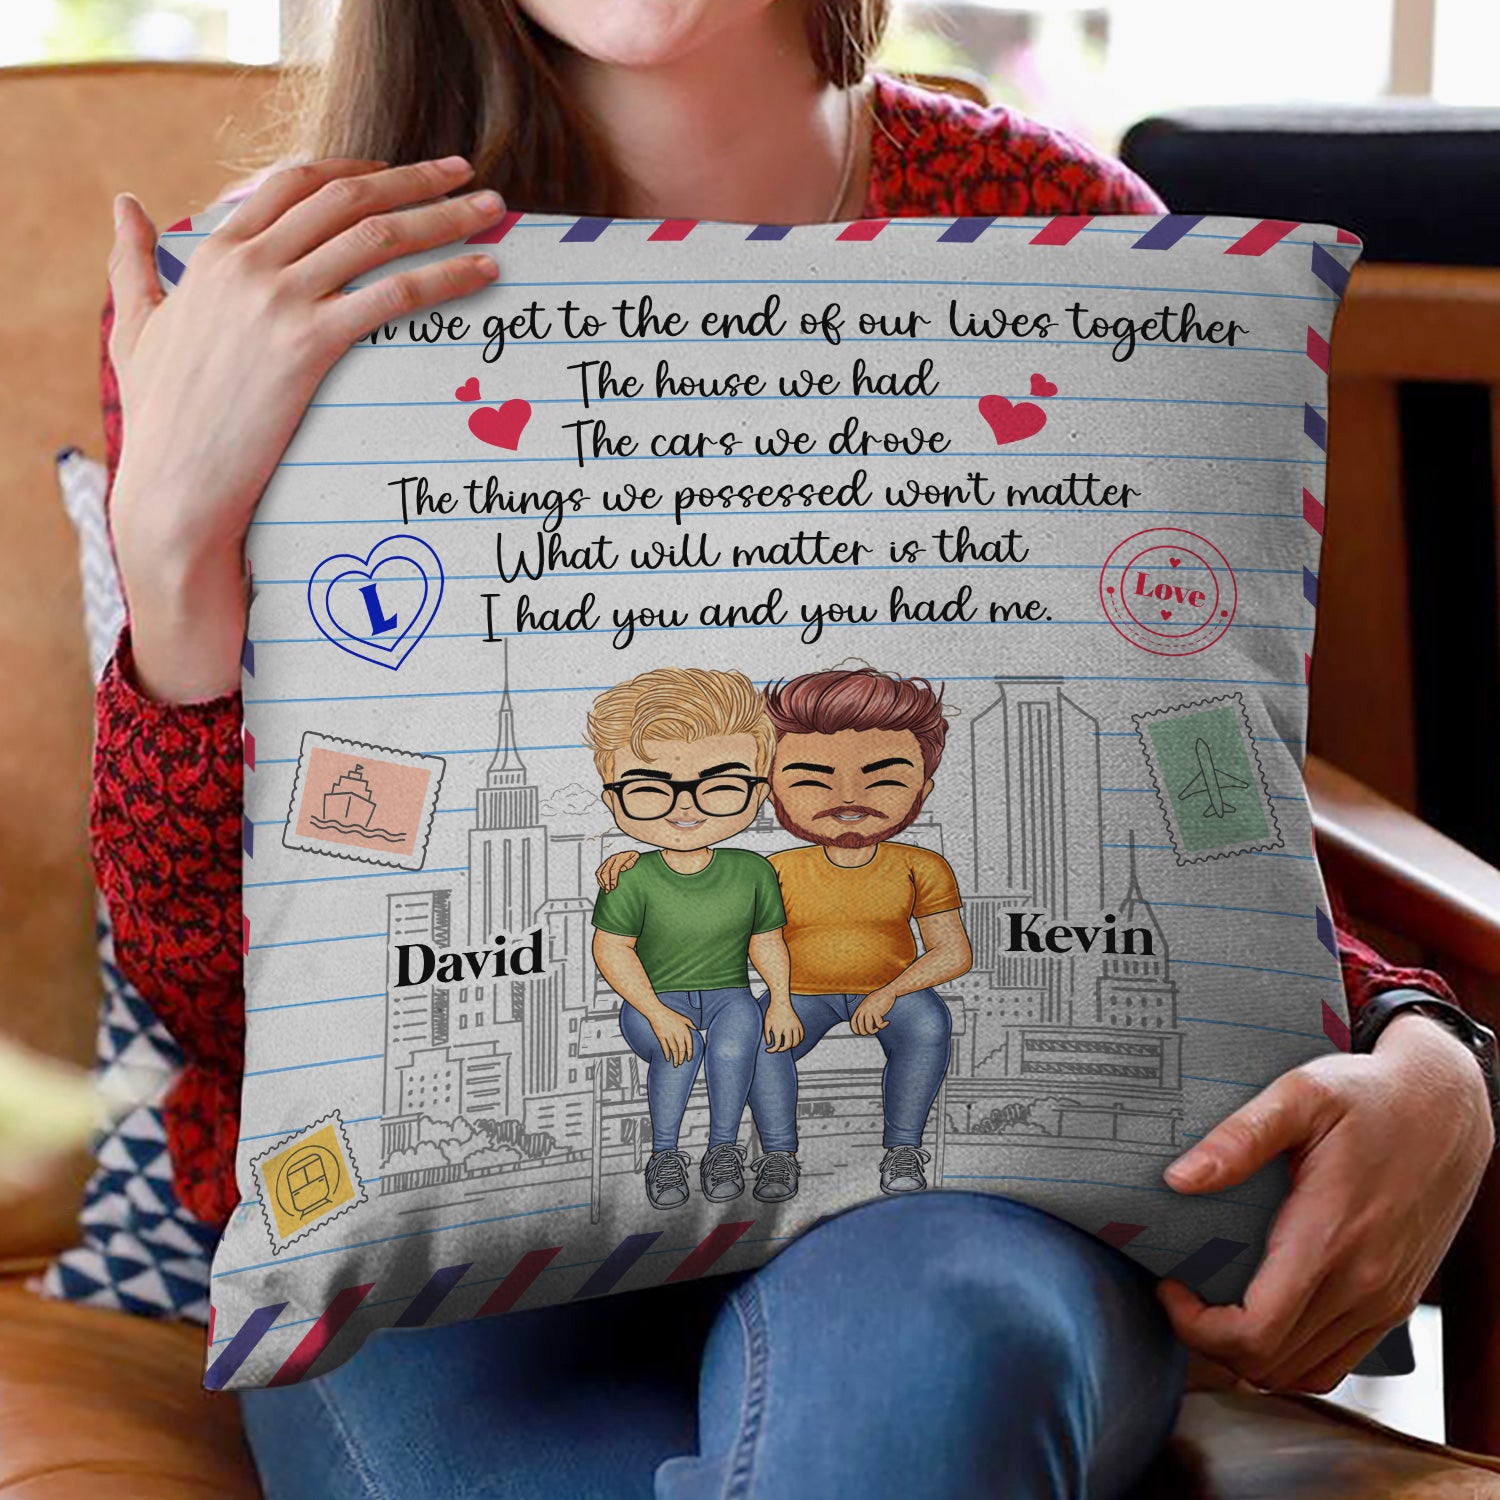 we get to the end of our lives together
The house we had
The cars we drove
The things we possessed won't matter
What will matter is that
I had you and you had me.
L
Love
David
Kevin